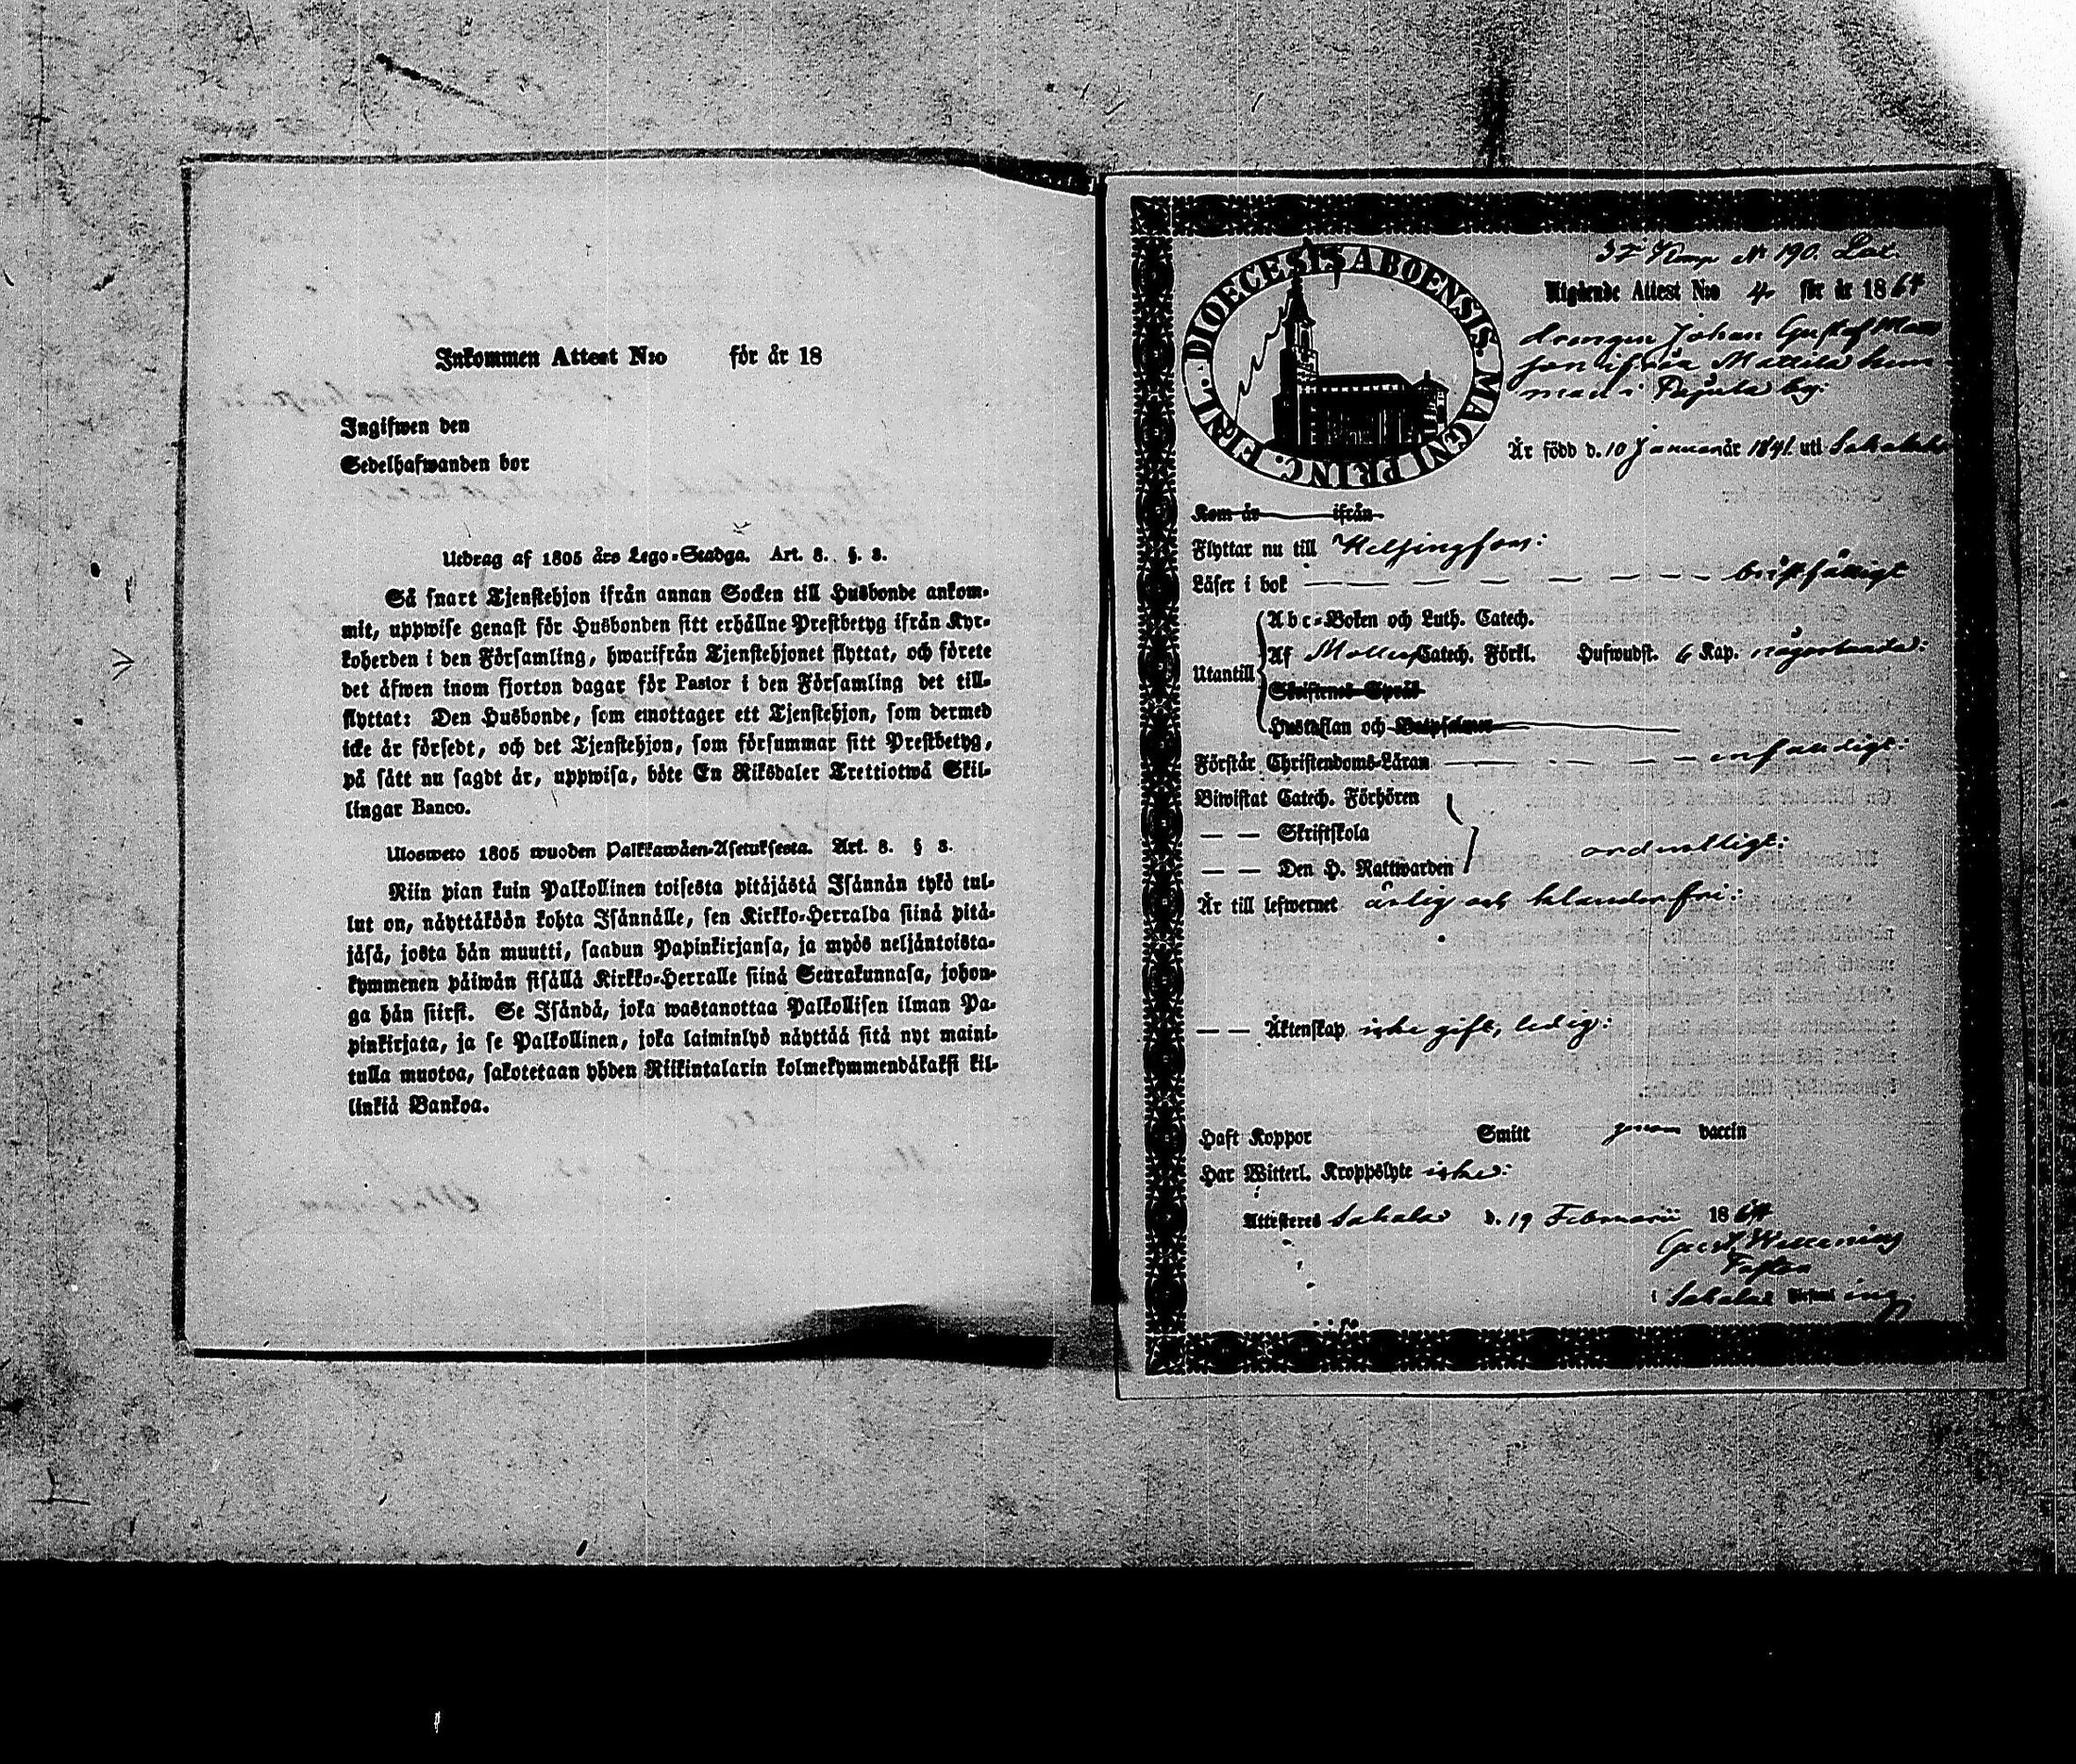 Inkommen Attest N:o för år 18
Ingifwen den
Sedelhafwanden bor
Utdrag af 1805 års Lego-Stadga. Art. 8. §. 8.
Så snart Tjenstehjon ifrån annan Socken till Husbonde ankom-
mit, uppwise genast för Husbonden sitt erhållne Prestbetyg ifrån Kyr-
koherden i den Församling, hwarifrån Tjenstehjonet flyttat, och förete
det äfwen inom fjorton dagar för Pastor i den Församling det till-
flyttat: Den Husbonde, som emottager ett Tjenstehjon, som dermed
icke är försedt, och det Tjenstehjon, som försummar sitt Prestbetyg,
på sätt nu sagdt är, uppwisa, böte En Riksdaler Trettiotwå Skil-
lingar Banco.
Ulosweto 1805 wuoden Palkkawäen-Asetuksesta. Art. 8. § 8.
Niin pian kuin Palkollinen toisesta pitäjästä Isännän tykö tul-
lut on, näyttäköön kohta Isännälle, sen Kirkko-Herralda siinä pitä-
jäsä, josta hän muutti, saadun Papinkirjansa, ja myös neljäntoista-
kymmenen päiwän sisällä Kirkko-Herralle siinä Seurakunnasa, johon-
ga hän siirsi. Se Isändä, joka wastanottaa Palkollisen ilman Pa-
pinkirjata, ja se Palkollinen, joka laiminlyö näyttää sitä nyt maini-
tulla muotoa, sakotetaan yhden Riikintalarin kolmekymmendäkaksi kil-
linkiä Bankoa.
DIOECESIS ABOENSIS. MAGNI PRINC. FINL.
N 190.
Utgående Attest N:o 4 för år 1864
drängen Johan Gustaf Mats
son ifrån Mattila hem
man i by:
Är född d. 10 Januari år 1841. uti
Kom år ifrån
Flyttar nu till Helsingfors:
Läser i bok — — — — — — bristfälligt
Abc-Boken och Luth. Catech.
Utantill Af Möllers Catech. Förkl. Hufwudst. 6 Kap. någorlunda:
Skriftenes Språk
Hustaflan och Botpsalmer
Förstår Christendoms-Läran — — — — enfaldigt:
Biwistat Catech. Förhören
— — Skriftskola ordentligt:
— — Den H. Nattwarden
Är till lefwernet ärlig och klanderfri:
— — Äktenskap icke gift, ledig:
Haft Koppor Smitt genom vaccin
Har Witterl. Kroppslyte icke:
Attesteras Sahalax d. 19 Februarii 1864
Pastor
i Sahalax Församling